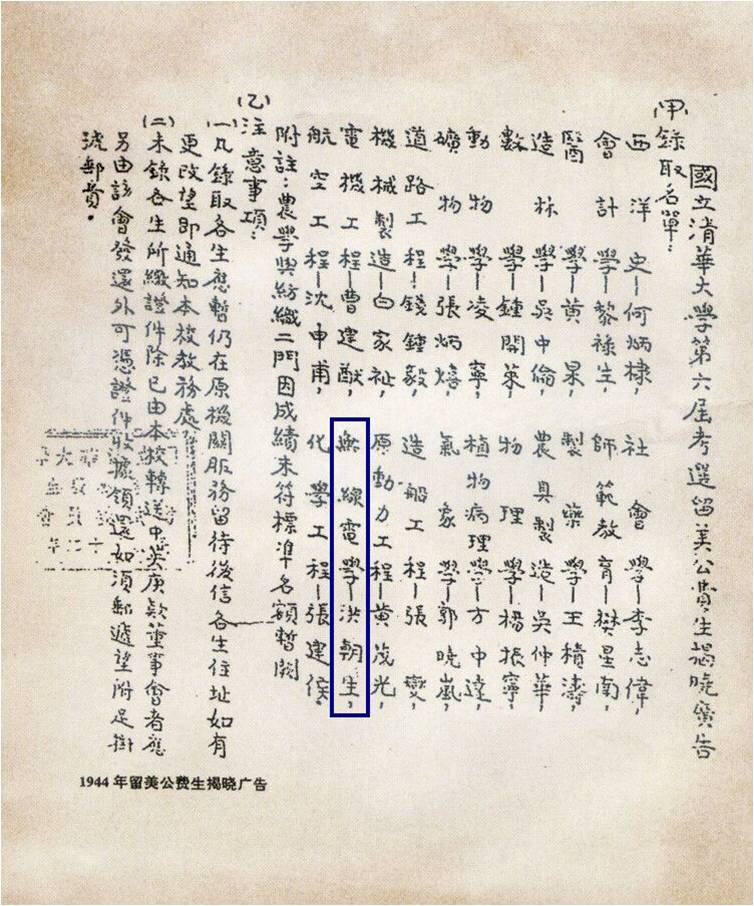 國立清華大學第六屆考選留美公費生揭曉廣告
(甲)錄取名單：
西洋史—何炳棣，社會學—李志偉，
會計學—黎祿生，師範教育—樊星南，
醫學—黃杲，製藥學—王積濤，
造林學—吳中倫，農具製造—吳仲華，
數學—鍾開萊，物理學—楊振寧，
動物學—凌寧，植物病理學—方中達，
礦物學—張炳熺，氣象學—郭曉嵐，
道路工程—錢鍾毅，造船工程—張燮，
機械製造—白家祉，原動力工程—黃茂光，
電機工程—曹建猷，無線電學—洪朝生，
航空工程—沈申甫，化學工程—張建侯。
附註：農學與紡織二門因成績未符標準名額暫闕
(乙)注意事項：
(一)凡錄取各生應暫仍在原機關服務留待後信各生住址如有
更改望即通知本校教務處
(二)未錄各生所繳證件除已由本校轉送中英庚款董事會者應
另由該會發還外可憑證件收據領還如須郵遞望附足掛
號郵費。
1944年留美公费生揭晓广告